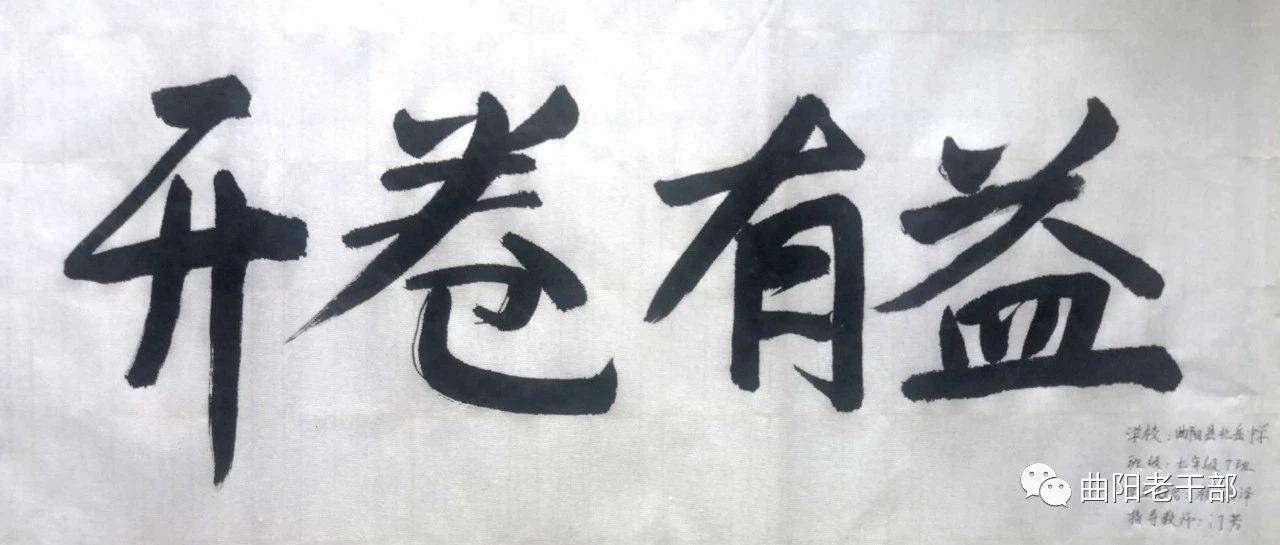 开卷有益
学校：曲阳县北岳中学
班级：七年级7班
指导教师：门芳
曲阳老干部